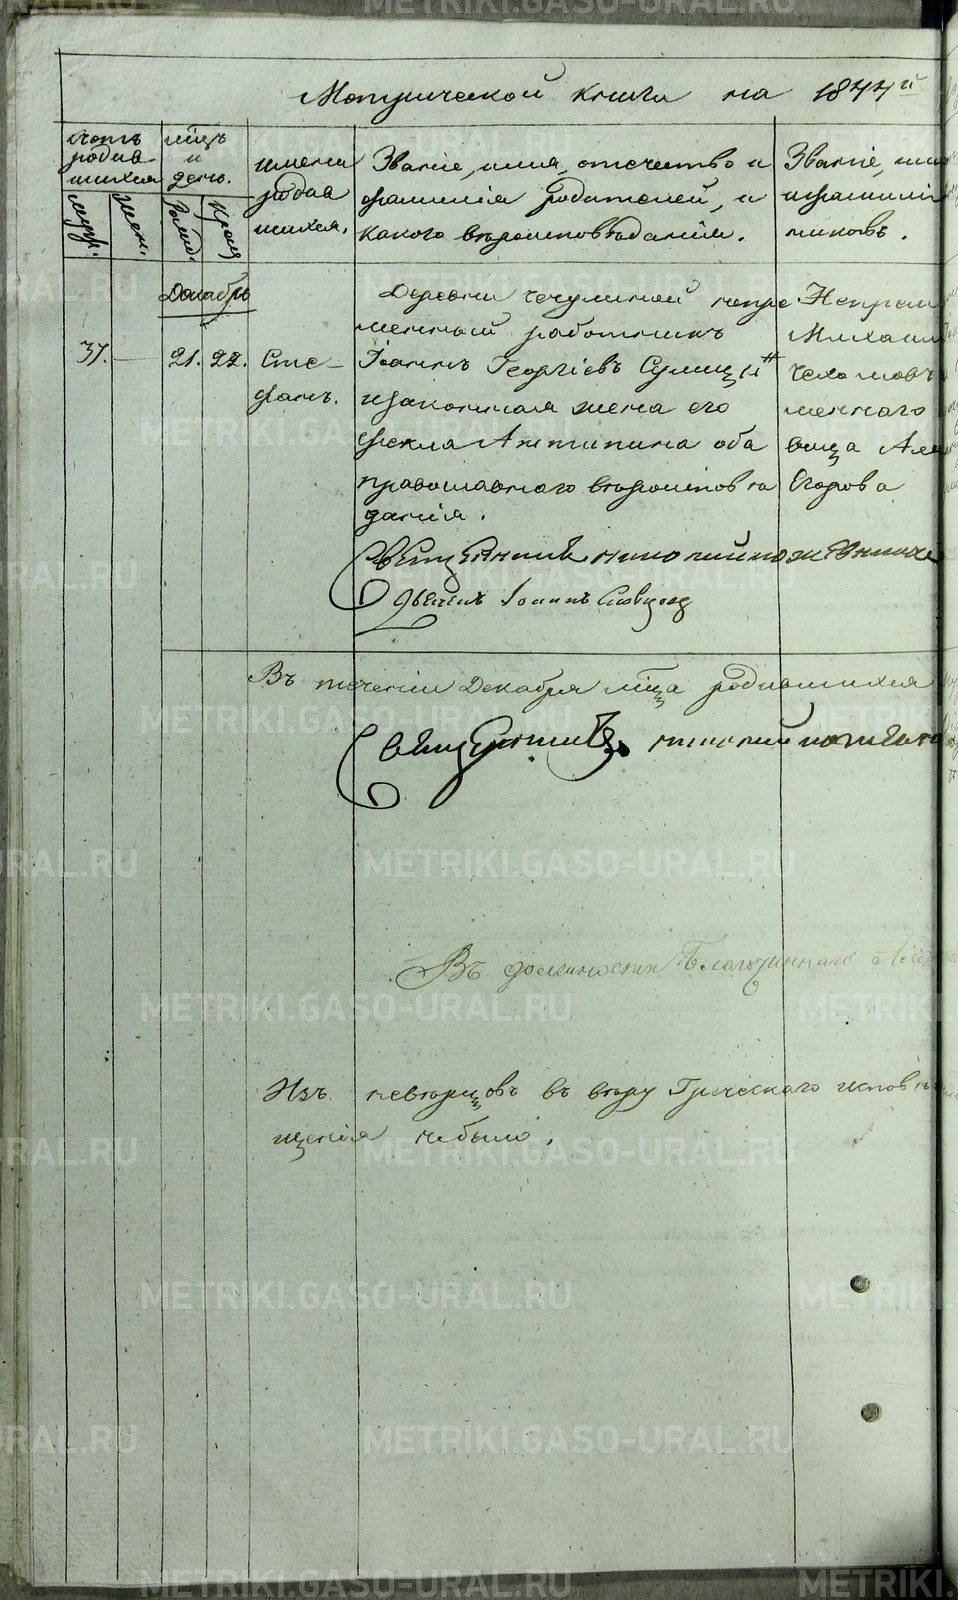 Метрической книги на 1844й
счетъ родив-шихся
мцъ и день.
имена родив шихся.
Званіе, имя, отчество и фамилія родителей, и какого вѣроисповѣданія.
Званіе, имя
и фамилі
никовъ.
муж.
жен.
рожд.
крещ.
Декабрь
37. — 21. 22. Сте-
фанъ.
Деревни Чечулиной непре
менный работникъ
Іоаннъ Георгіевъ
и законная жена его
Фекла Антипина оба
православнаго вѣроисповѣ
данія.
Непрем
Михаил
меннаго
Егорова
Священникъ
Дьячекъ Іоаннъ Словцовъ
Въ теченіи Декабря мца родившихся
Священникъ
Въ должности Благочиннаго
Изъ невѣрцовъ въ вѣру Греческаго исповѣ
щенія небыло.
METRIKI.GASO-URAL.RU